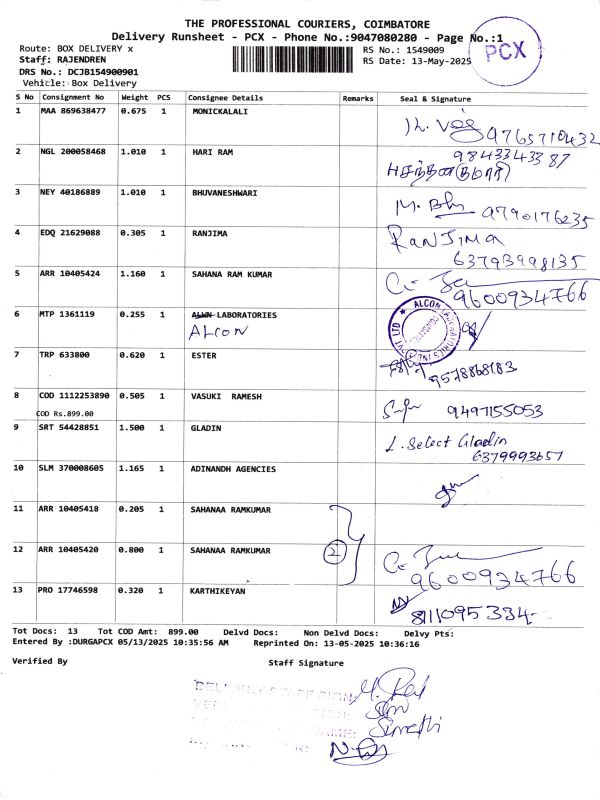 THE PROFESSIONAL COURIERS, COIMBATORE
Delivery Runsheet - PCX - Phone No.:9047080280 - Page No.:1
Route: BOX DELIVERY x
RS No.: 1549009
PCX
Staff: RAJENDREN
RS Date: 13-May-2025
DRS No.: DCJB154900901
Vehicle: Box Delivery
S No Consignment No Weight PCS Consignee Details Remarks Seal & Signature
1 MAA 869638477 0.675 1 MONICKALALI
9765710432
2 NGL 200058468 1.010 1 HARI RAM
9843343387
3 NEY 40186889 1.010 1 BHUVANESHWARI
9790176235
4 EDQ 21629088 0.305 1 RANJIMA RANJIMA
63793998135
5 ARR 10405424 1.160 1 SAHANA RAM KUMAR
9600934766
6 MTP 1361119 0.255 1 ALWN LABORATORIES
ALCON
7 TRP 633800 0.620 1 ESTER
9578868183
8 COD 1112253890 0.505 1 VASUKI RAMESH
9497155053
COD Rs.899.00
9 SRT 54428851 1.500 1 GLADIN
L. Select Gladin
6379993657
10 SLM 370008605 1.165 1 ADINANDH AGENCIES
11 ARR 10405418 0.205 1 SAHANAA RAMKUMAR
12 ARR 10405420 0.800 1 SAHANAA RAMKUMAR 2
9600934766
13 PRO 17746598 0.320 1 KARTHIKEYAN
811095334
Tot Docs: 13 Tot COD Amt: 899.00 Delvd Docs: Non Delvd Docs: Delvy Pts:
Entered By :DURGAPCX 05/13/2025 10:35:56 AM Reprinted On: 13-05-2025 10:36:16
Verified By Staff Signature
Sumathi